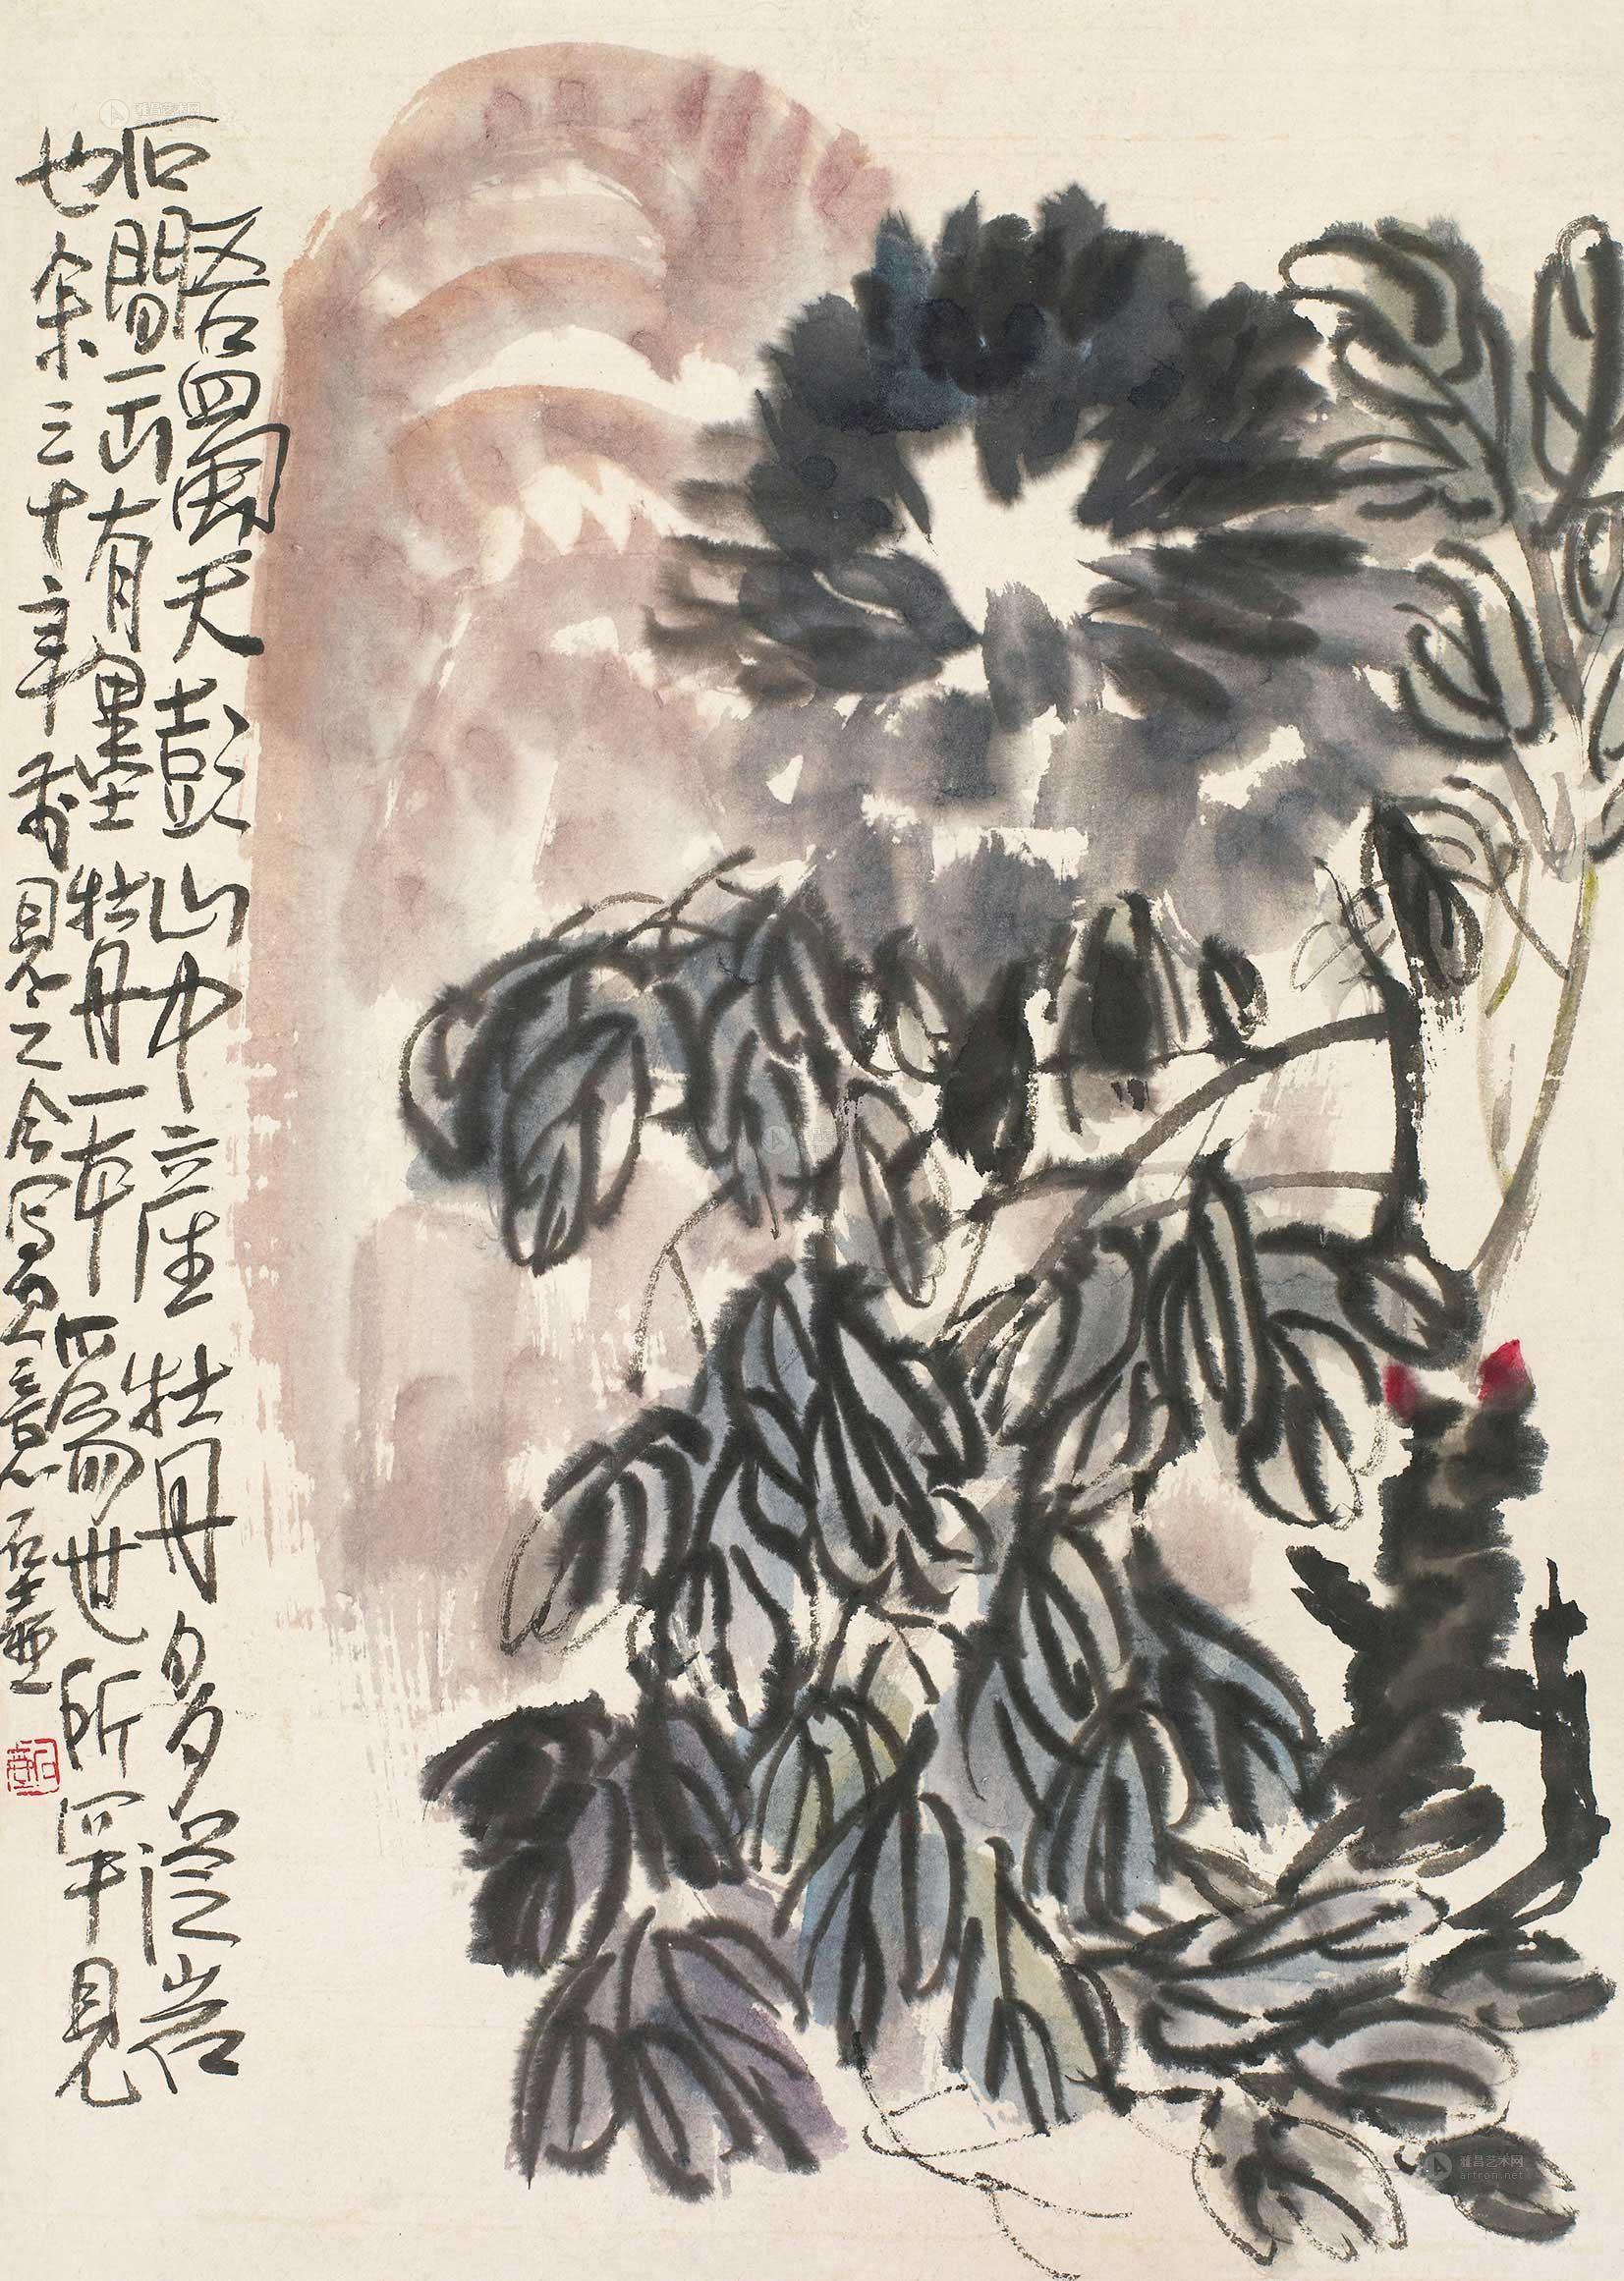 吾蜀天彭山中產牡丹多從岩
石間出有墨牡丹一本
世所罕見
也余三十年前見之今寫其意石壺
石壺
雅昌艺术网
雅昌艺术网
artron.net